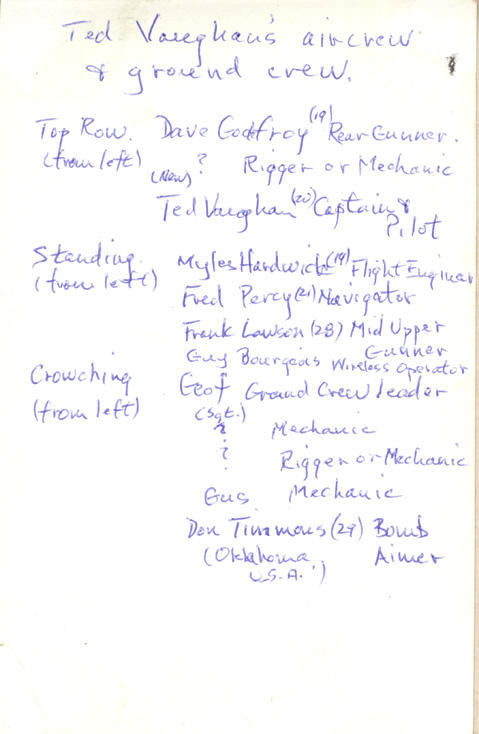 Ted Vaughan's aircrew
& ground crew.
Top Row. Dave Godfroy (19) Rear Gunner.
(from left) (New) ? Rigger or Mechanic
Ted Vaughan (20) Captain &
Pilot
Standing Myles Hardwick (19) Flight Engineer
(from left) Fred Percy (21) Navigator
Frank Lawson (28) Mid Upper
Gunner
Guy Bourgeois Wireless Operator
Crowching Geof Ground Crew leader
(from left) (Sgt.)
? Mechanic
? Rigger or Mechanic
Gus Mechanic
Don Timmons (29) Bomb
(Oklahoma Aimer
U.S.A.)